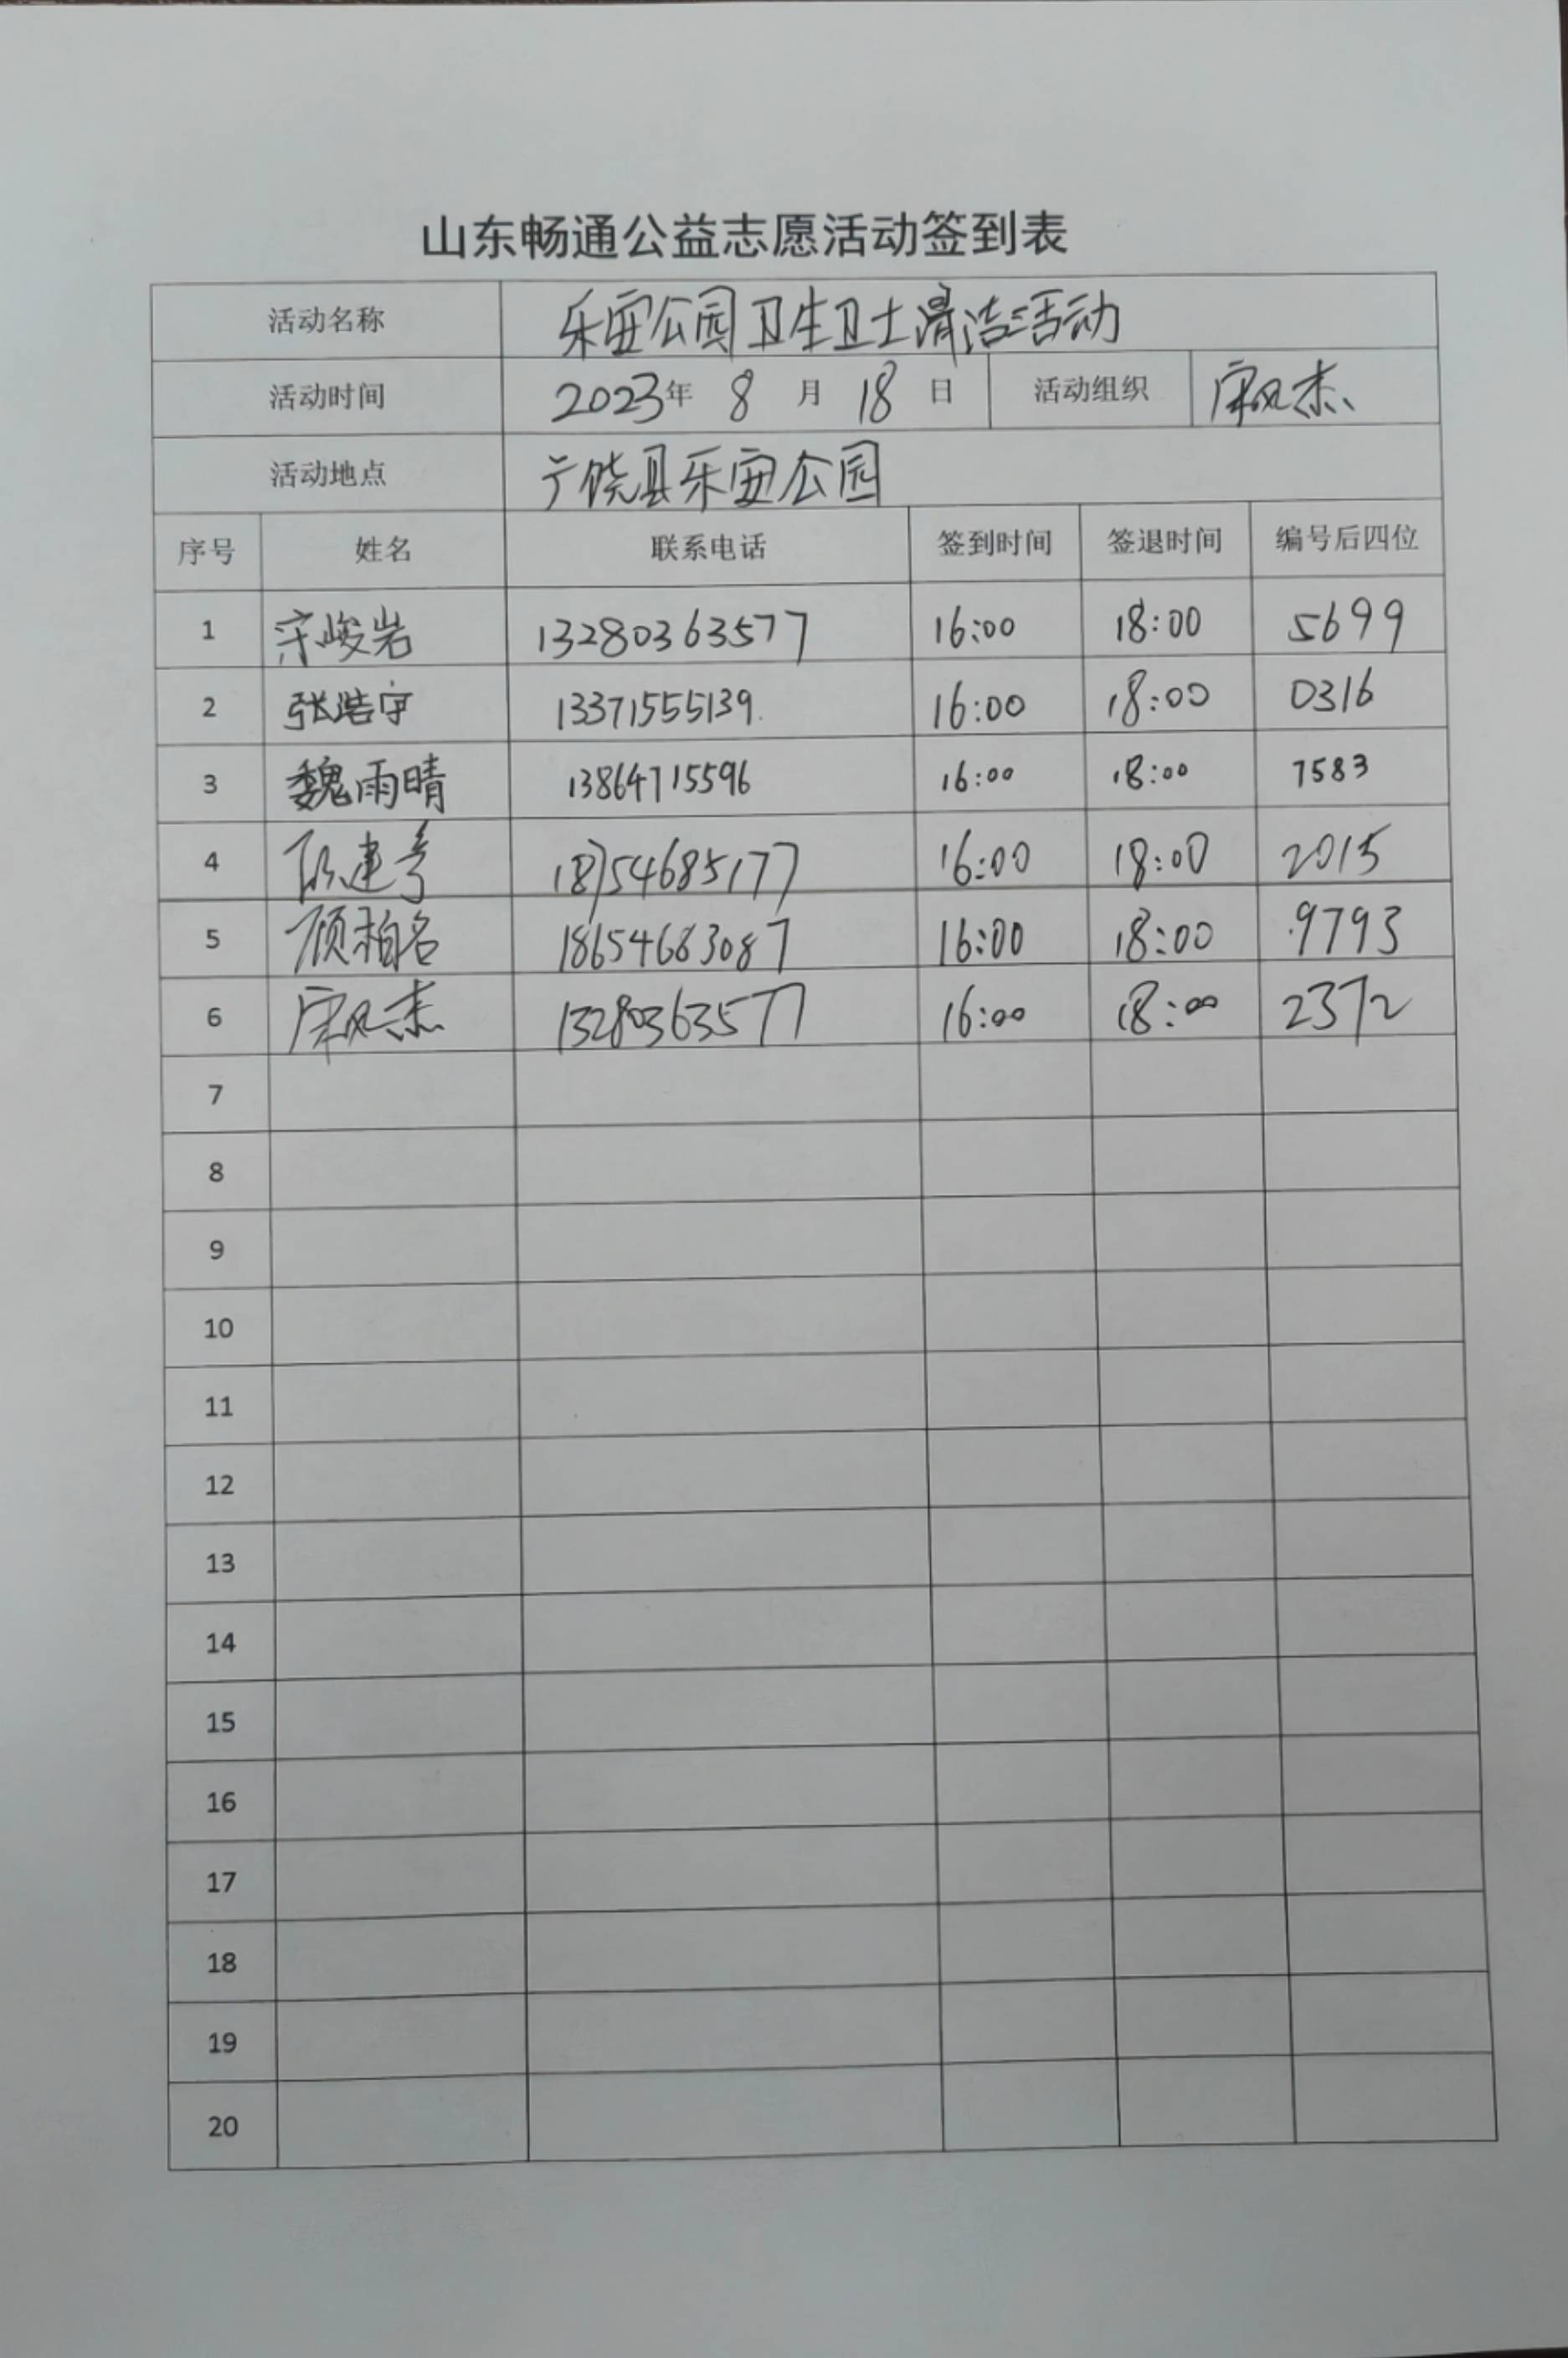 山东畅通公益志愿活动签到表
活动名称 乐安公园卫生卫士清洁活动
活动时间 2023年 8 月 18 日 活动组织 宋风杰
活动地点 广饶县乐安公园
序号 姓名 联系电话 签到时间 签退时间 编号后四位
1 宋峻岩 13280363577 16:00 18:00 5699
2 张浩宇 13371555139 16:00 18:00 0316
3 魏雨晴 13864715596 16:00 18:00 7583
4 建 18754685177 16:00 18:00 2015
5 顾柏名 18654683087 16:00 18:00 9793
6 宋风杰 13280363577 16:00 18:00 2372
7
8
9
10
11
12
13
14
15
16
17
18
19
20